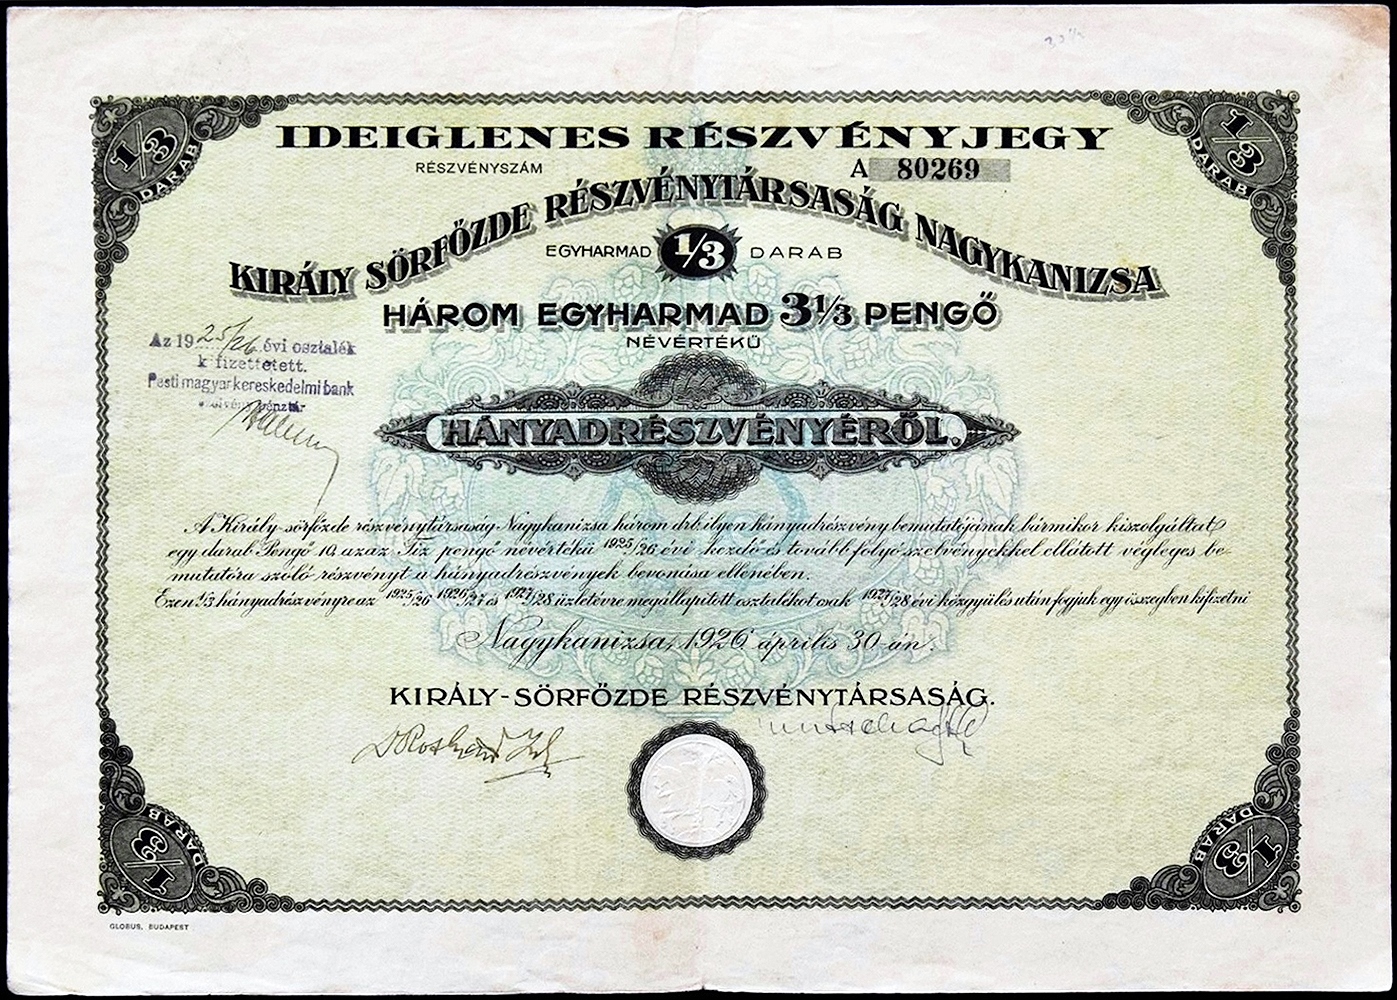 30 ⅓
1/3 DARAB
1/3 DARAB
IDEIGLENES RÉSZVÉNYJEGY
RÉSZVÉNYSZÁM A 80269
KIRÁLY SÖRFŐZDE RÉSZVÉNYTÁRSASÁG NAGYKANIZSA
EGYHARMAD 1/3 DARAB
HÁROM EGYHARMAD 3⅓ PENGŐ
NÉVÉRTÉKŰ
Az 1925/26 évi osztalék
k fizettetett.
Pesti magyar kereskedelmi bank
pénztár
HÁNYADRÉSZVÉNYÉRŐL.
A Király-sörfőzde részvénytársaság Nagykanizsa három drb ilyen hányadrészvény bemutatójának bármikor kiszolgáltat
egy darab Pengő 10, azaz Tíz pengő névértékű 1925/26 évi kezdő és tovább folyó szelvényekkel ellátott végleges be-
mutatóra szóló részvényt a hányadrészvények bevonása ellenében.
Ezen 1/3 hányadrészvényre az 1925/26 1926/27 és 1927/28 üzletévre megállapított osztalékot csak 1927/28 évi közgyülés után fogjuk egy összegben kifizetni
Nagykanizsa, 1926 április 30-án.
KIRÁLY-SÖRFŐZDE RÉSZVÉNYTÁRSASÁG.
1/3 DARAB
1/3 DARAB
GLOBUS, BUDAPEST